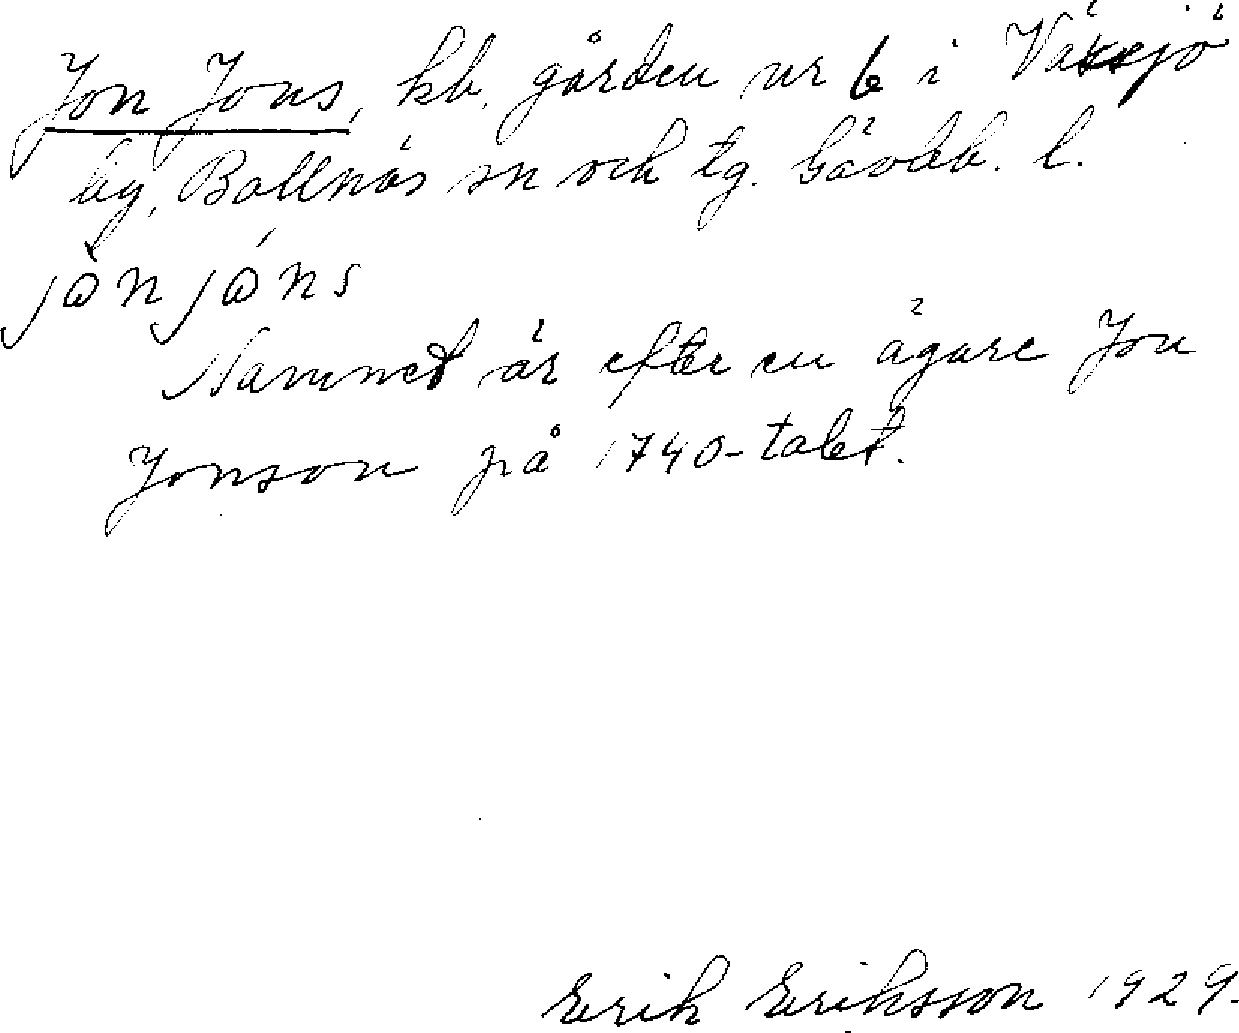 Jon Jons, kb, gården nr 6 i Växsjö
by, Bollnäs sn och tg. Gävleb. l.
jòn jóns
Namnet är efter en ägare Jon
Jonson på 1740-talet.
Erik Eriksson 1929.